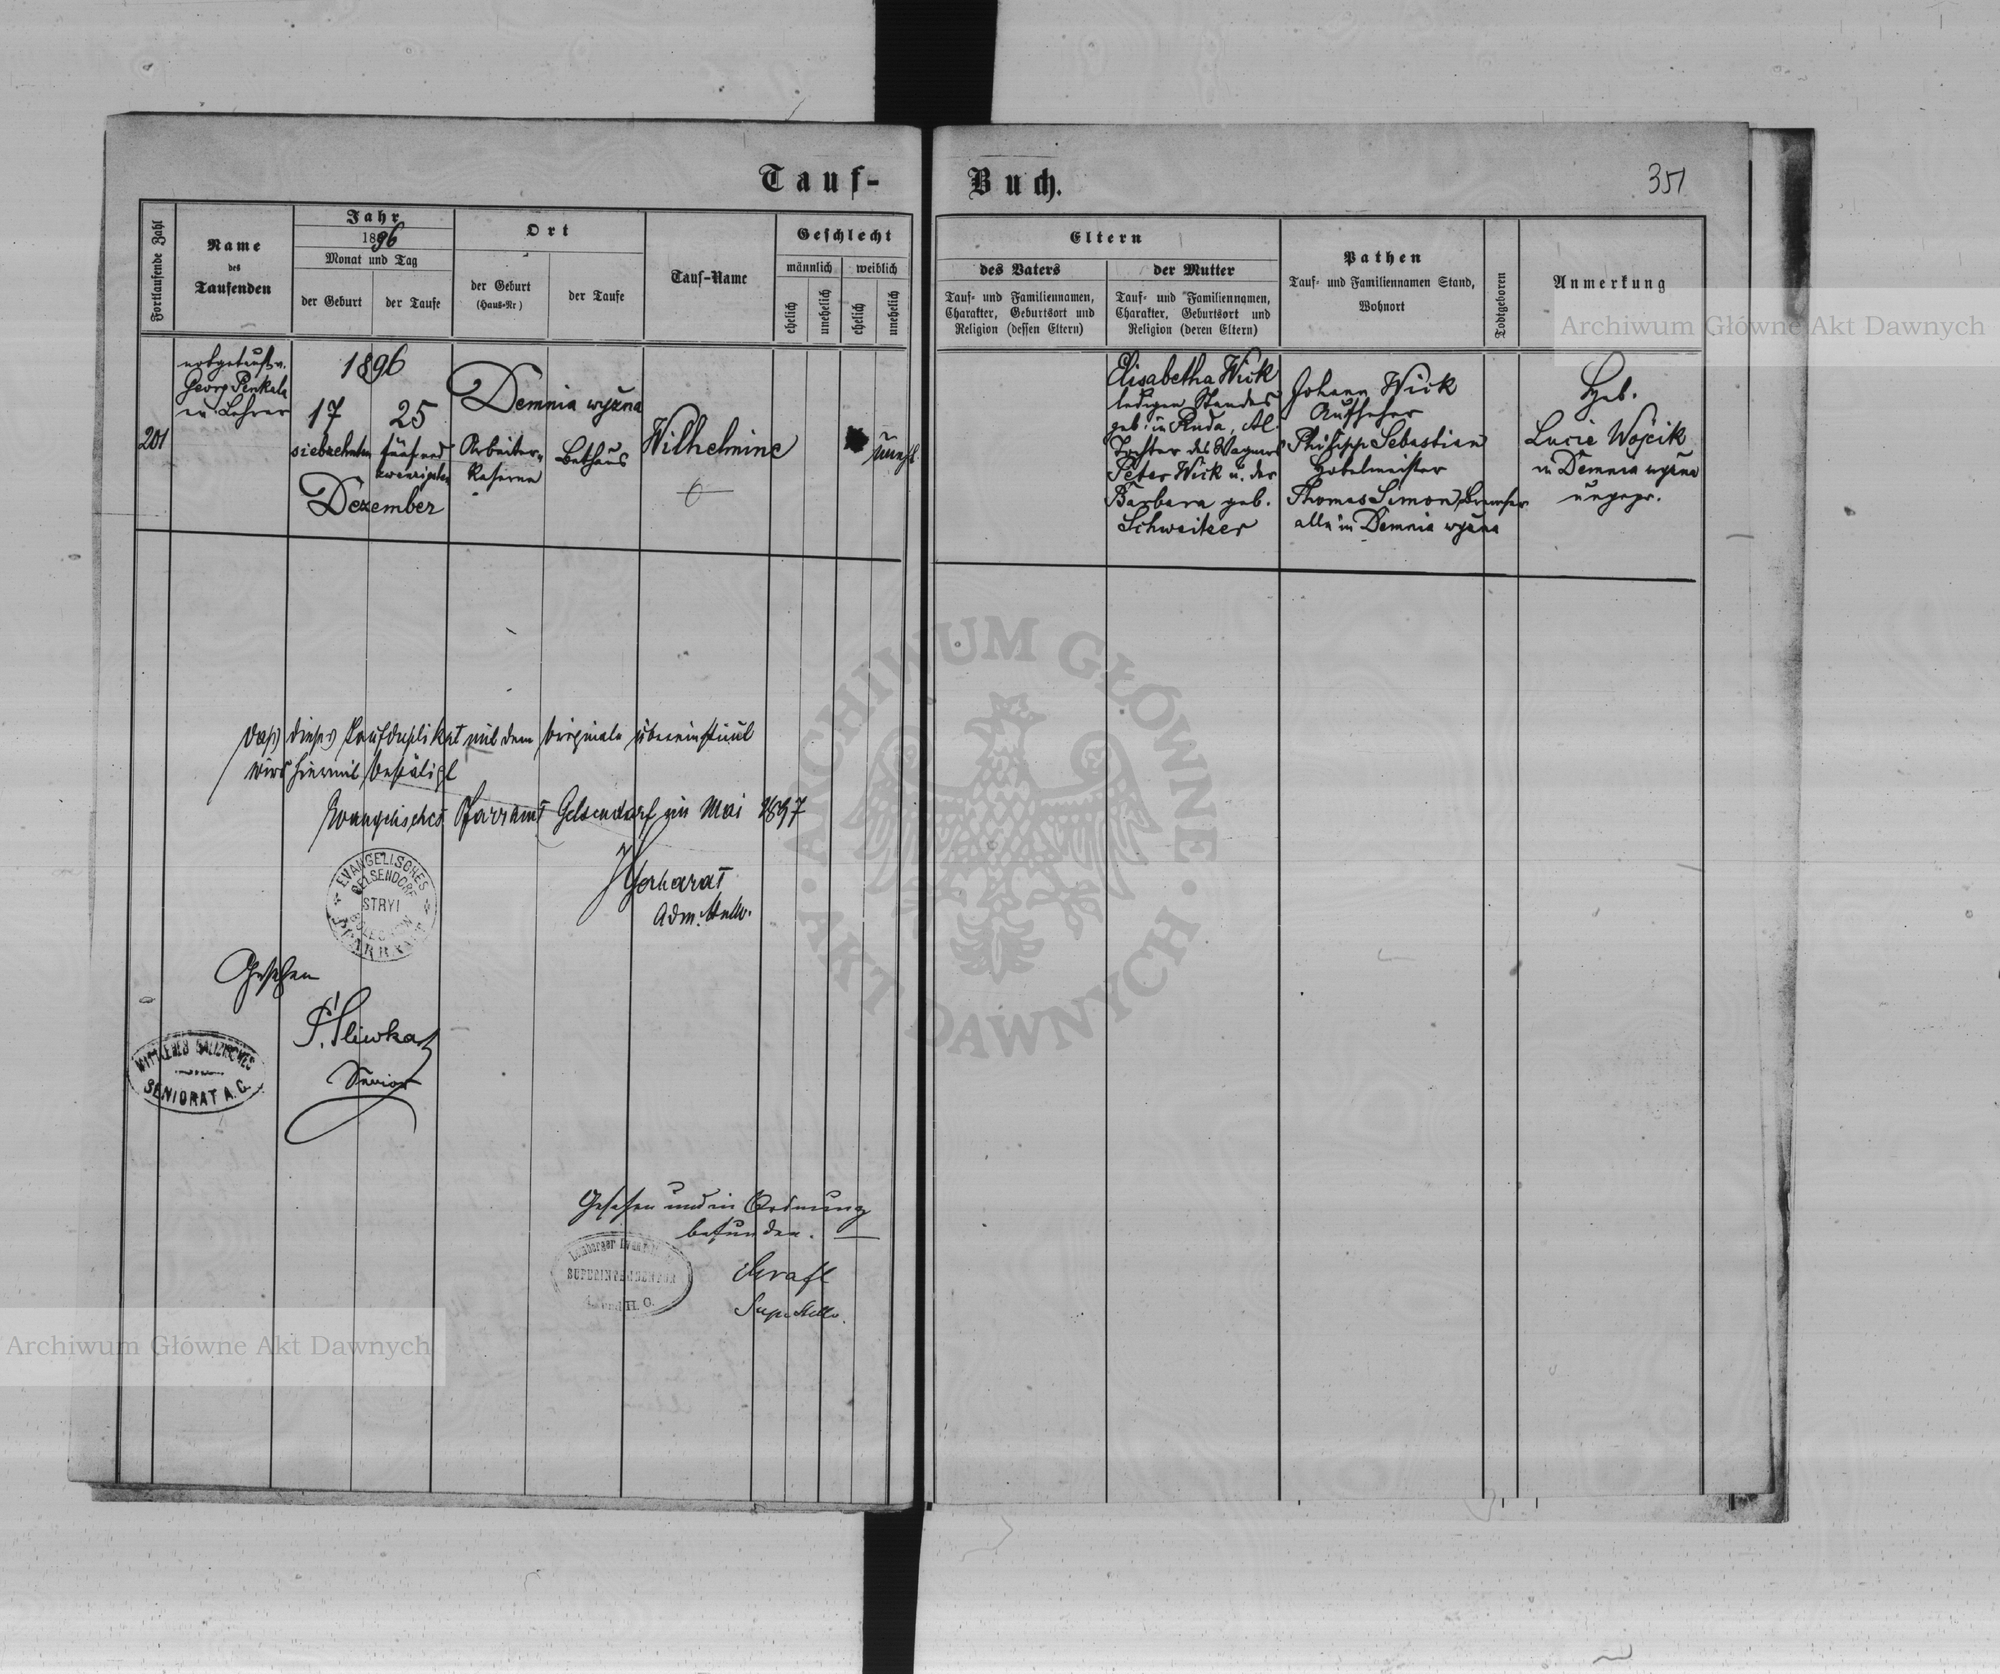 Tauf-Buch.
351
Fortlaufende Zahl
Name
des
Taufenden
Jahr
1896
Monat und Tag
der Geburt
der Taufe
Ort
der Geburt
(Haus-Nr)
der Taufe
Tauf-Name
Geschlecht
männlich
weiblich
ehelich
unehelich
ehelich
unehelich
Eltern
des Vaters
Tauf- und Familiennamen,
Charakter, Geburtsort und
Religion (dessen Eltern)
der Mutter
Tauf- und Familiennamen,
Charakter, Geburtsort und
Religion (deren Eltern)
Pathen
Tauf- und Familiennamen Stand,
Wohnort
Todtgeboren
Anmerkung
201
notgetauft v.
Georg Penkala
ev. Lehrer
1896
17
siebzehnten
25
fünfund
zwanzigsten
Dezember
Demnia wyżna
Arbeiter-
Kaserne
Bethaus
Wilhelmine
unehl
Elisabetha Wick
ledigen Standes
geb. in Ruda, Al.
Tochter des Wagners
Peter Wick u. der
Barbara geb.
Schweitzer
Johann Wick
Aufseher
Philipp Sebastian
Hobelmeister
Thomas Simon, Bremser
alle in Demnia wyżna
Heb.
Lucie Wojcik
in Demnia wyżna
ungepr.
Dass dieses Taufduplikat mit dem Originale übereinstimt
wird hiermit bestätigt
Evangelisches Pfarramt Gelsendorf im Mai 1897
Adm. Stellv.
EVANGELISCHES
GELSENDORF
STRYI
PFARRAMT
Gesehen
P. Sliwka
Senior
MITTLERES GALIZISCHES
SENIORAT A. C.
Gesehen und in Ordnung
befunden.
Graft
Sup. Stellv.
Lemberger Evangel.
SUPERINTENDENTUR
A. und H. C.
Archiwum Główne Akt Dawnych
Archiwum Główne Akt Dawnych
ARCHIWUM GŁÓWNE
AKT DAWNYCH